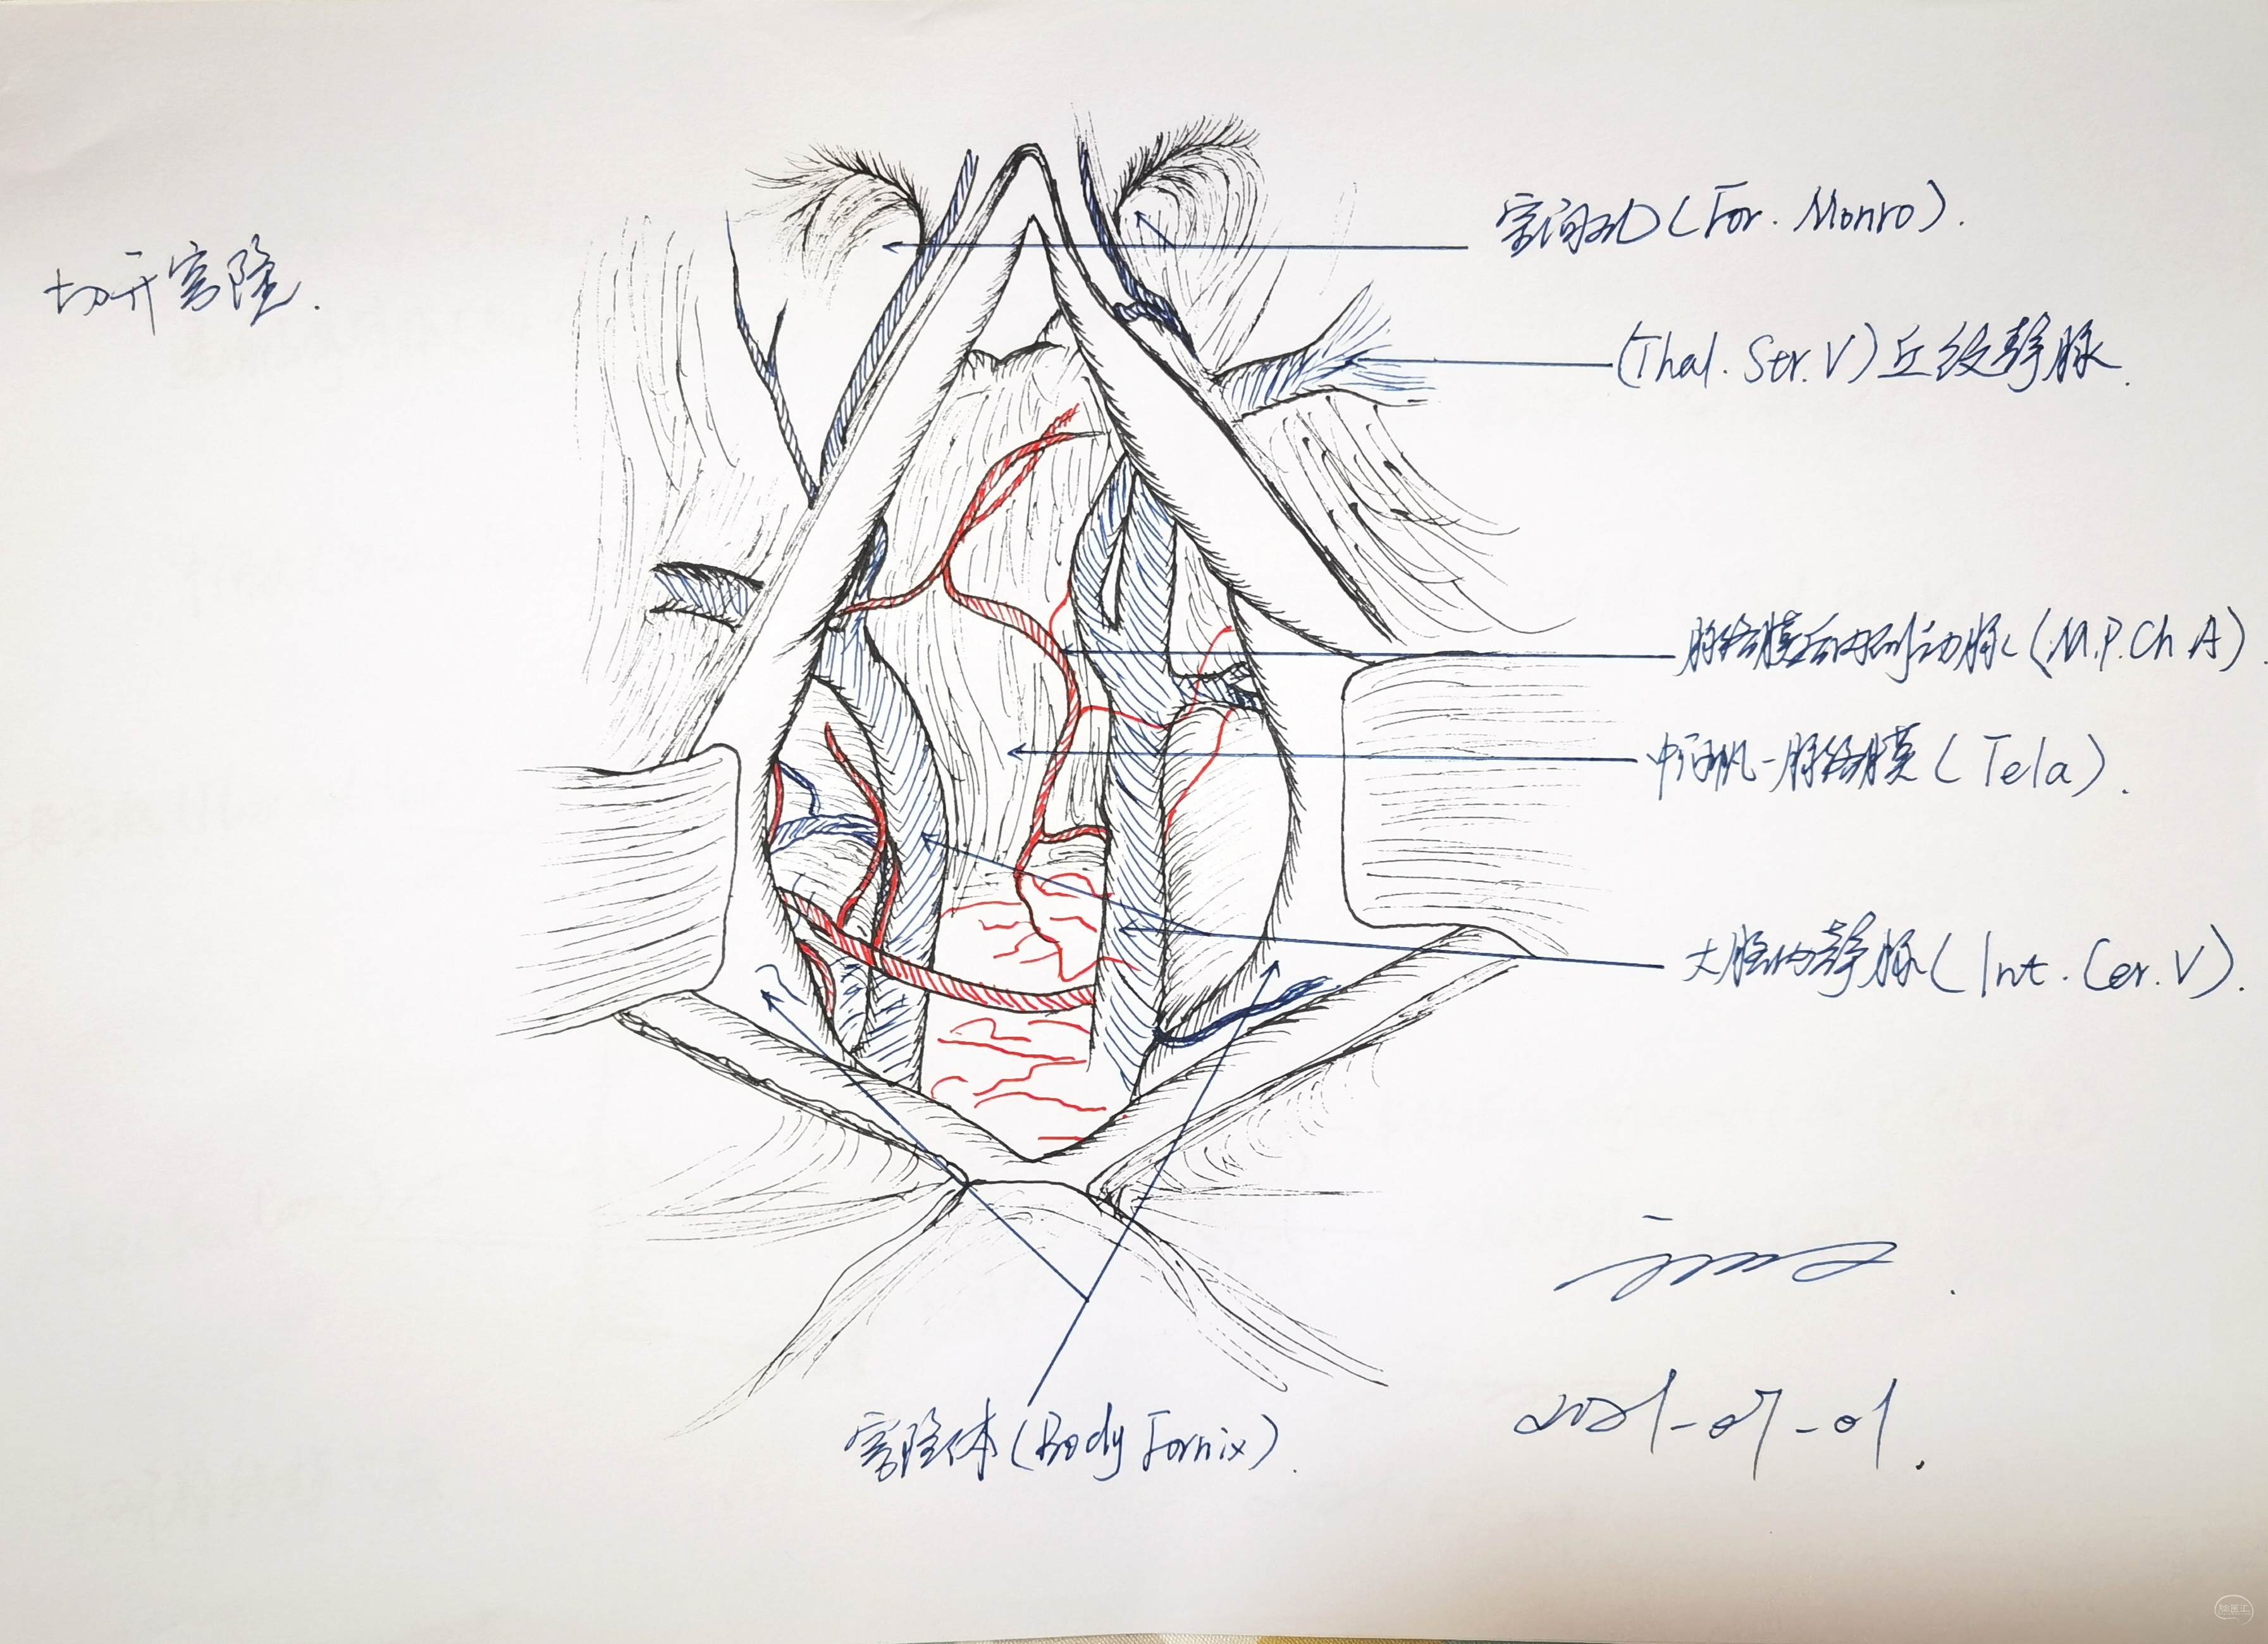 切开穹隆.
室间孔(For. Monro).
(Thal. Str. V)丘纹静脉.
脉络膜后内侧动脉(M.P.Ch A).
中间帆-脉络膜(Tela).
大脑内静脉(Int. Cer. V).
穹隆体(Body Fornix).
2021-07-01.
脑医汇